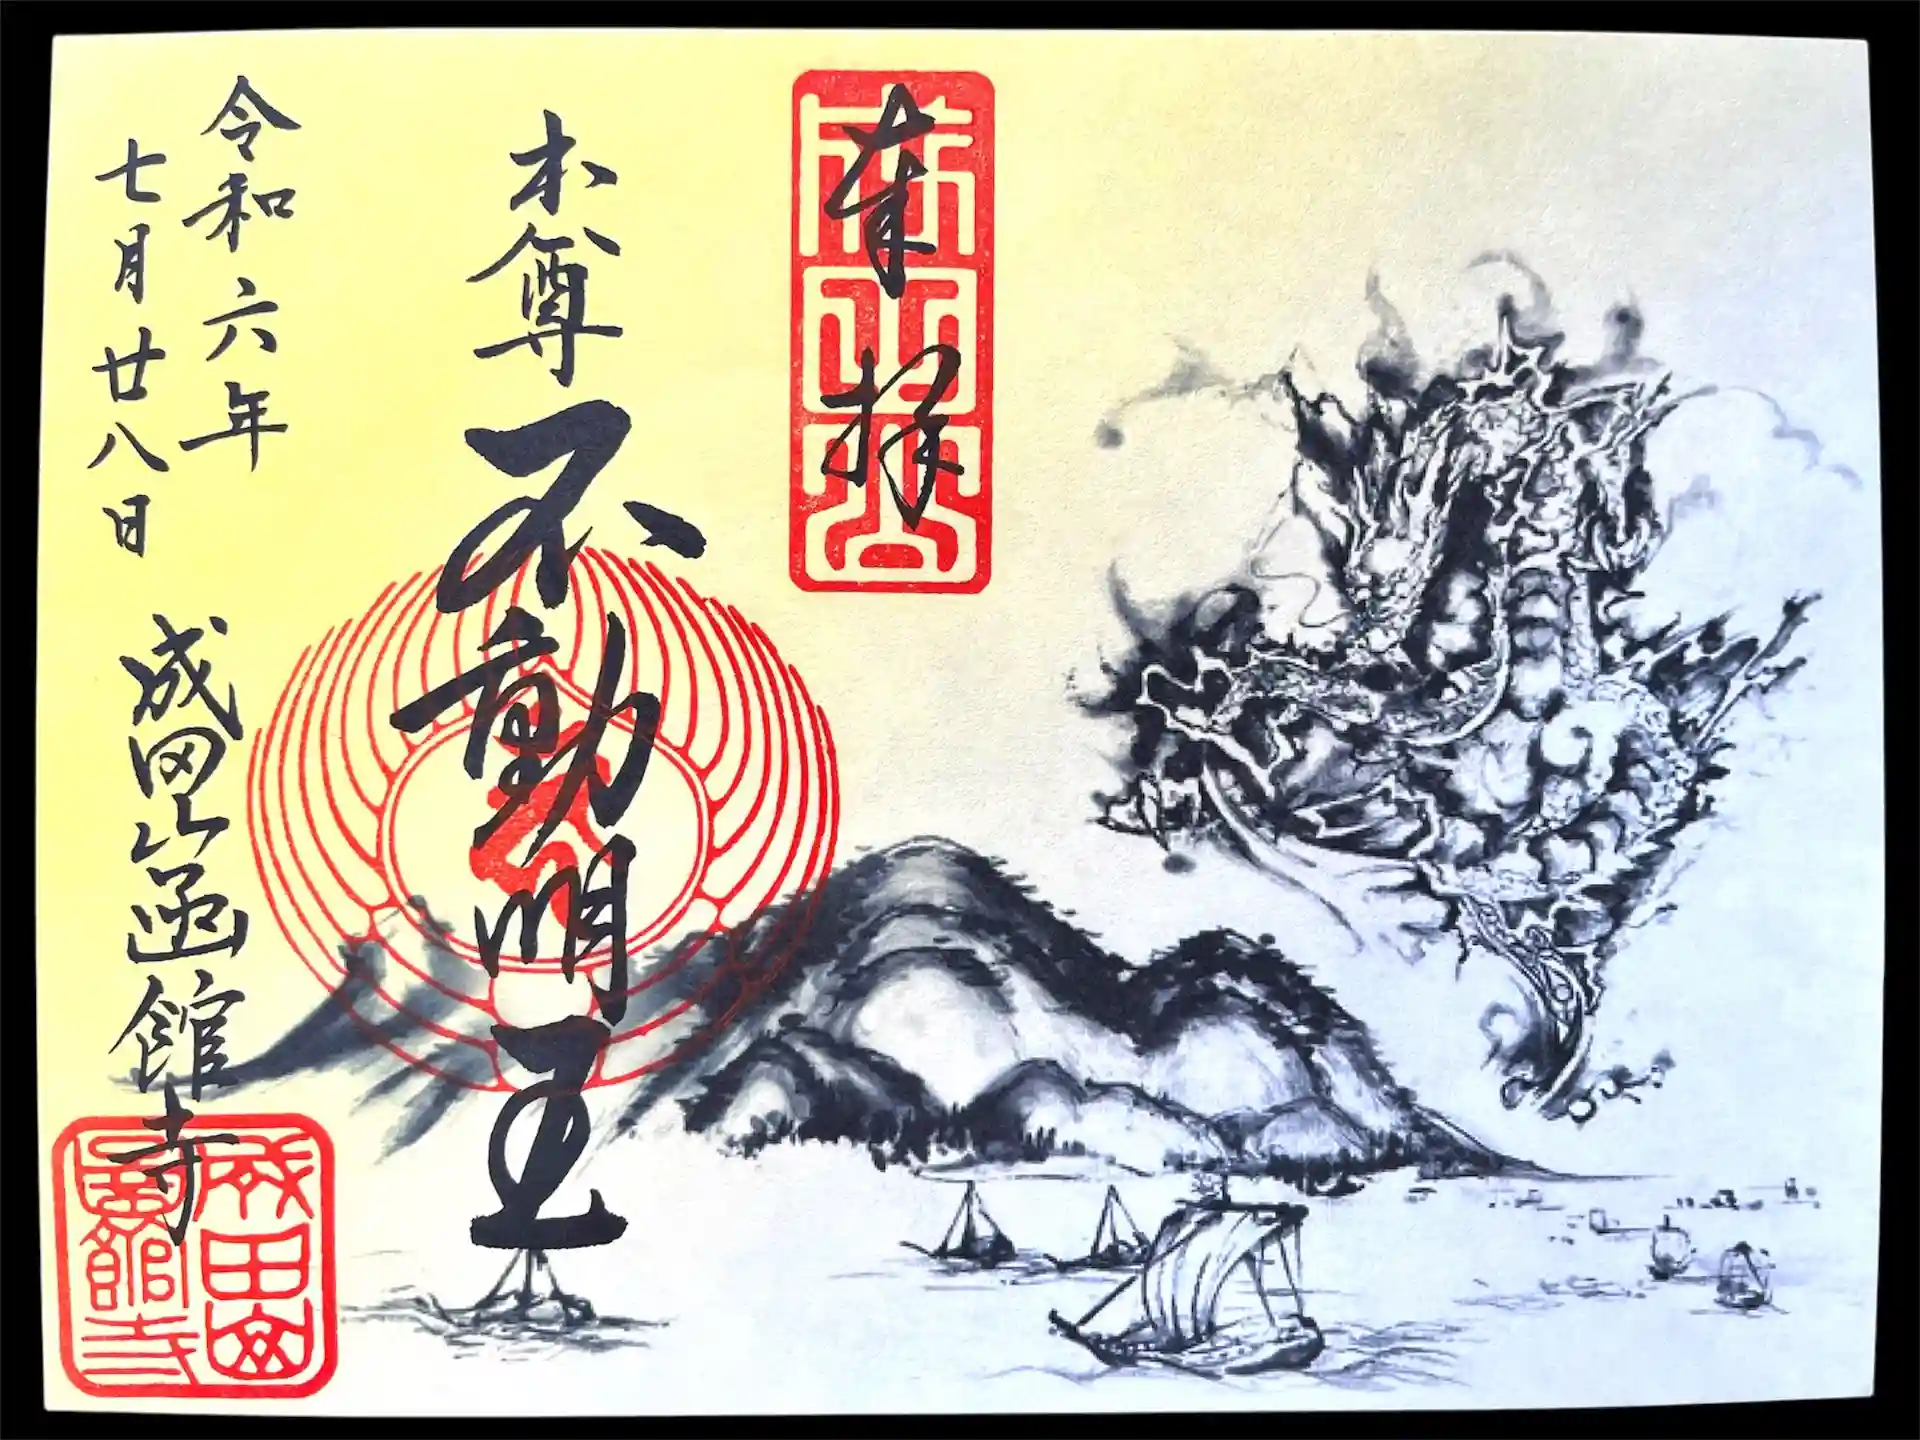 奉拝
成田山
本尊
不動明王
令和六年
七月廿八日
成田山函館寺
成田山
函館寺